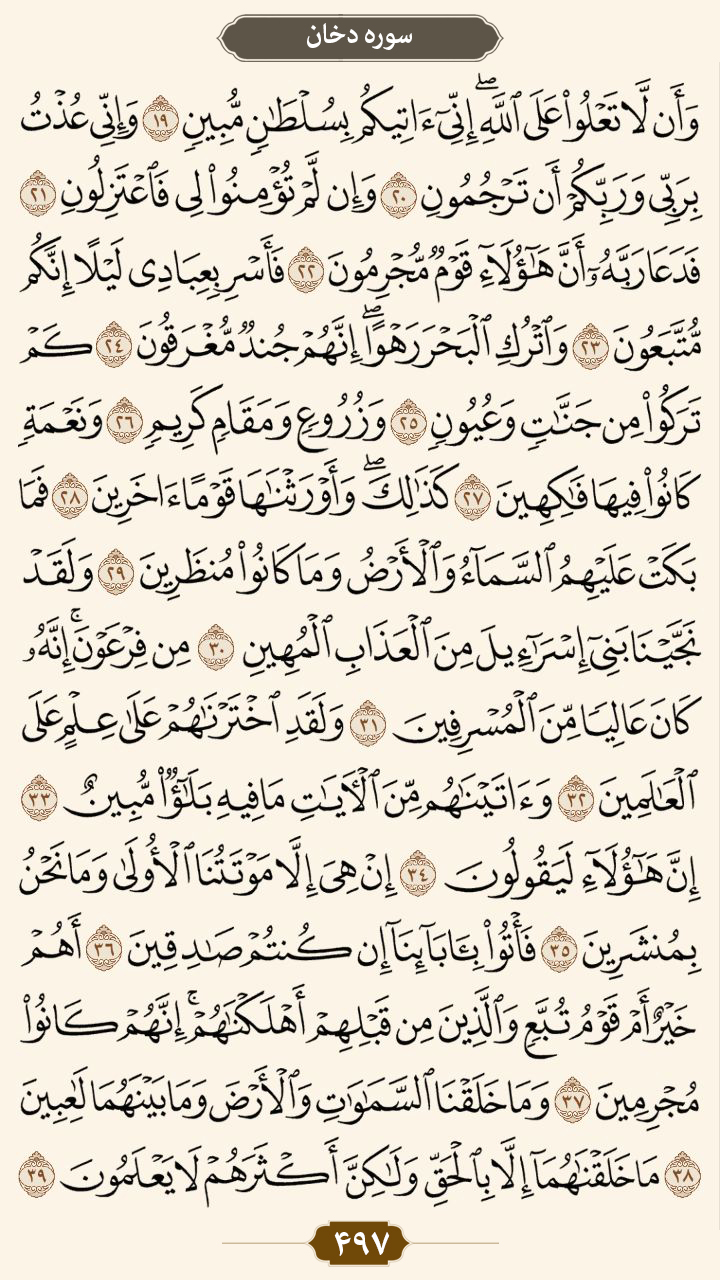 سوره دخان
وَأَن لَّا تَعْلُوا۟ عَلَى ٱللَّهِۖ إِنِّىٓ ءَاتِيكُم بِسُلْطَٰنٍ مُّبِينٍ ١٩ وَإِنِّى عُذْتُ
بِرَبِّى وَرَبِّكُمْ أَن تَرْجُمُونِ ٢٠ وَإِن لَّمْ تُؤْمِنُوا۟ لِى فَٱعْتَزِلُونِ ٢١
فَدَعَا رَبَّهُۥٓ أَنَّ هَٰٓؤُلَآءِ قَوْمٌ مُّجْرِمُونَ ٢٢ فَأَسْرِ بِعِبَادِى لَيْلًا إِنَّكُم
مُّتَّبَعُونَ ٢٣ وَٱتْرُكِ ٱلْبَحْرَ رَهْوًاۖ إِنَّهُمْ جُندٌ مُّغْرَقُونَ ٢٤ كَمْ
تَرَكُوا۟ مِن جَنَّٰتٍ وَعُيُونٍ ٢٥ وَزُرُوعٍ وَمَقَامٍ كَرِيمٍ ٢٦ وَنَعْمَةٍ
كَانُوا۟ فِيهَا فَٰكِهِينَ ٢٧ كَذَٰلِكَۖ وَأَوْرَثْنَٰهَا قَوْمًا ءَاخَرِينَ ٢٨ فَمَا
بَكَتْ عَلَيْهِمُ ٱلسَّمَآءُ وَٱلْأَرْضُ وَمَا كَانُوا۟ مُنظَرِينَ ٢٩ وَلَقَدْ
نَجَّيْنَا بَنِىٓ إِسْرَٰٓءِيلَ مِنَ ٱلْعَذَابِ ٱلْمُهِينِ ٣٠ مِن فِرْعَوْنَۚ إِنَّهُۥ
كَانَ عَالِيًا مِّنَ ٱلْمُسْرِفِينَ ٣١ وَلَقَدِ ٱخْتَرْنَٰهُمْ عَلَىٰ عِلْمٍ عَلَى
ٱلْعَٰلَمِينَ ٣٢ وَءَاتَيْنَٰهُم مِّنَ ٱلْءَايَٰتِ مَا فِيهِ بَلَٰٓؤٌا۟ مُّبِينٌ ٣٣
إِنَّ هَٰٓؤُلَآءِ لَيَقُولُونَ ٣٤ إِنْ هِىَ إِلَّا مَوْتَتُنَا ٱلْأُولَىٰ وَمَا نَحْنُ
بِمُنشَرِينَ ٣٥ فَأْتُوا۟ بِـَٔابَآئِنَآ إِن كُنتُمْ صَٰدِقِينَ ٣٦ أَهُمْ
خَيْرٌ أَمْ قَوْمُ تُبَّعٍ وَٱلَّذِينَ مِن قَبْلِهِمْ أَهْلَكْنَٰهُمْۚ إِنَّهُمْ كَانُوا۟
مُجْرِمِينَ ٣٧ وَمَا خَلَقْنَا ٱلسَّمَٰوَٰتِ وَٱلْأَرْضَ وَمَا بَيْنَهُمَا لَٰعِبِينَ
٣٨ مَا خَلَقْنَٰهُمَآ إِلَّا بِٱلْحَقِّ وَلَٰكِنَّ أَكْثَرَهُمْ لَا يَعْلَمُونَ ٣٩
۴۹۷